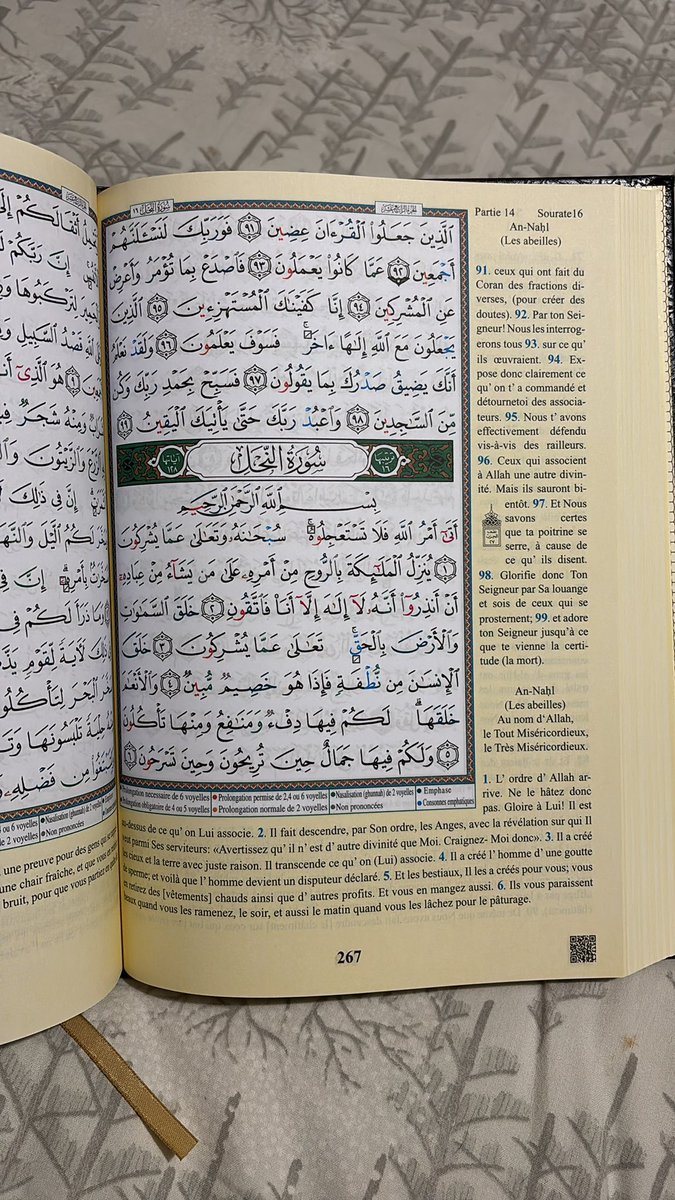 سورة النحل ١٦
الجزء الرابع عشر
ٱلَّذِينَ جَعَلُوا۟ ٱلْقُرْءَانَ عِضِينَ ٩١ فَوَرَبِّكَ لَنَسْـَٔلَنَّهُمْ
أَجْمَعِينَ ٩٢ عَمَّا كَانُوا۟ يَعْمَلُونَ ٩٣ فَٱصْدَعْ بِمَا تُؤْمَرُ وَأَعْرِضْ
عَنِ ٱلْمُشْرِكِينَ ٩٤ إِنَّا كَفَيْنَٰكَ ٱلْمُسْتَهْزِءِينَ ٩٥ ٱلَّذِينَ
يَجْعَلُونَ مَعَ ٱللَّهِ إِلَٰهًا ءَاخَرَ ۚ فَسَوْفَ يَعْلَمُونَ ٩٦ وَلَقَدْ نَعْلَمُ
أَنَّكَ يَضِيقُ صَدْرُكَ بِمَا يَقُولُونَ ٩٧ فَسَبِّحْ بِحَمْدِ رَبِّكَ وَكُن
مِّنَ ٱلسَّٰجِدِينَ ٩٨ وَٱعْبُدْ رَبَّكَ حَتَّىٰ يَأْتِيَكَ ٱلْيَقِينُ ٩٩
ترتيبها ١٦ سُورَةُ النَّحْلِ آياتها ١٢٨
بِسْمِ ٱللَّهِ ٱلرَّحْمَٰنِ ٱلرَّحِيمِ
أَتَىٰٓ أَمْرُ ٱللَّهِ فَلَا تَسْتَعْجِلُوهُ ۚ سُبْحَٰنَهُۥ وَتَعَٰلَىٰ عَمَّا يُشْرِكُونَ
١ يُنَزِّلُ ٱلْمَلَٰٓئِكَةَ بِٱلرُّوحِ مِنْ أَمْرِهِۦ عَلَىٰ مَن يَشَآءُ مِنْ عِبَادِهِۦٓ
أَنْ أَنذِرُوٓا۟ أَنَّهُۥ لَآ إِلَٰهَ إِلَّآ أَنَا۠ فَٱتَّقُونِ ٢ خَلَقَ ٱلسَّمَٰوَٰتِ
وَٱلْأَرْضَ بِٱلْحَقِّ ۚ تَعَٰلَىٰ عَمَّا يُشْرِكُونَ ٣ خَلَقَ
ٱلْإِنسَٰنَ مِن نُّطْفَةٍ فَإِذَا هُوَ خَصِيمٌ مُّبِينٌ ٤ وَٱلْأَنْعَٰمَ
خَلَقَهَا ۗ لَكُمْ فِيهَا دِفْءٌ وَمَنَٰفِعُ وَمِنْهَا تَأْكُلُونَ
٥ وَلَكُمْ فِيهَا جَمَالٌ حِينَ تُرِيحُونَ وَحِينَ تَسْرَحُونَ ٦
Prolongation nécessaire de 6 voyelles Prolongation permise de 2,4 ou 6 voyelles Nasalisation (ghunnah) de 2 voyelles Emphase
Prolongation obligatoire de 4 ou 5 voyelles Prolongation normale de 2 voyelles Non prononcées Consonnes emphatiques
Partie 14 Sourate16
An-Naḥl
(Les abeilles)
91. ceux qui ont fait du
Coran des fractions di-
verses, (pour créer des
doutes). 92. Par ton Sei-
gneur! Nous les interrog-
erons tous 93. sur ce qu'
ils œuvraient. 94. Ex-
pose donc clairement ce
qu' on t' a commandé et
détournetoi des associa-
teurs. 95. Nous t' avons
effectivement défendu
vis-à-vis des railleurs.
96. Ceux qui associent
à Allah une autre divin-
ité. Mais ils sauront bi-
entôt. 97. Et Nous
savons certes
que ta poitrine se
serre, à cause de
ce qu' ils disent.
98. Glorifie donc Ton
Seigneur par Sa louange
et sois de ceux qui se
prosternent; 99. et adore
ton Seigneur jusqu'à ce
que te vienne la certi-
tude (la mort).
An-Naḥl
(Les abeilles)
Au nom d'Allah,
le Tout Miséricordieux,
le Très Miséricordieux.
1. L' ordre d' Allah ar-
rive. Ne le hâtez donc
pas. Gloire à Lui! Il est
au-dessus de ce qu' on Lui associe. 2. Il fait descendre, par Son ordre, les Anges, avec la révélation sur qui Il
veut parmi Ses serviteurs: «Avertissez qu' il n' est d' autre divinité que Moi. Craignez- Moi donc». 3. Il a créé
les cieux et la terre avec juste raison. Il transcende ce qu' on (Lui) associe. 4. Il a créé l' homme d' une goutte
de sperme; et voilà que l' homme devient un disputeur déclaré. 5. Et les bestiaux, Il les a créés pour vous; vous
en retirez des [vêtements] chauds ainsi que d' autres profits. Et vous en mangez aussi. 6. Ils vous paraissent
beaux quand vous les ramenez, le soir, et aussi le matin quand vous les lâchez pour le pâturage.
267